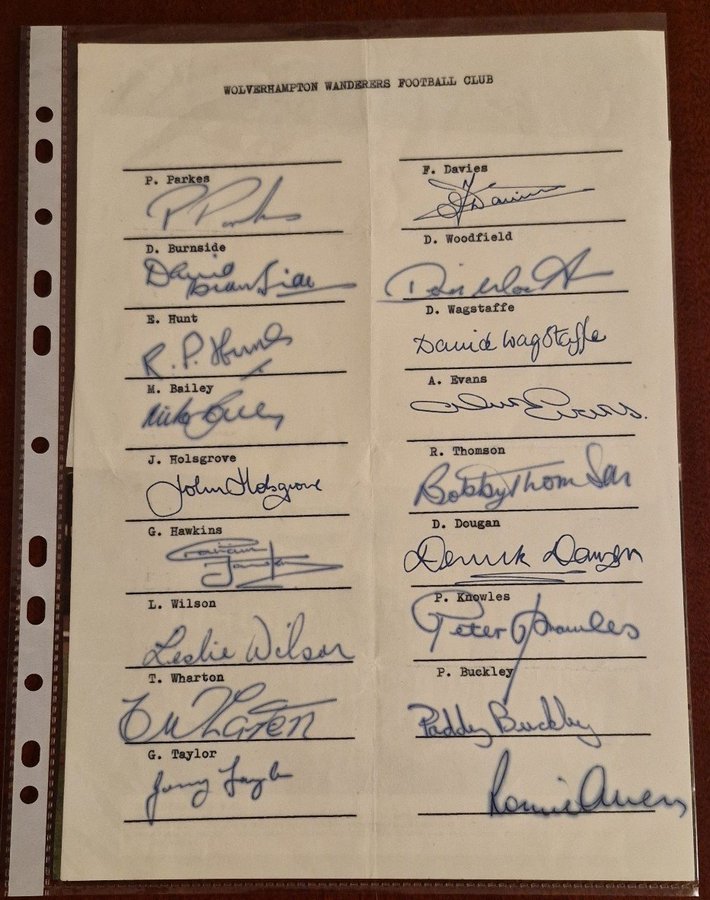 WOLVERHAMPTON WANDERERS FOOTBALL CLUB
P. Parkes
P Parkes
D. Burnside
David Burnside
E. Hunt
R. P. Hunt
M. Bailey
Mike Bailey
J. Holsgrove
John Holsgrove
G. Hawkins
Graham
L. Wilson
Leslie Wilson
T. Wharton
T Wharton
G. Taylor
Gerry Taylor
F. Davies
F Davies
D. Woodfield
D. Wagstaffe
David Wagstaffe
A. Evans
Alun Evans.
R. Thomson
Bobby Thomson
D. Dougan
Derek Dougan
P. Knowles
Peter Knowles
P. Buckley
Paddy Buckley
Ronnie Allen